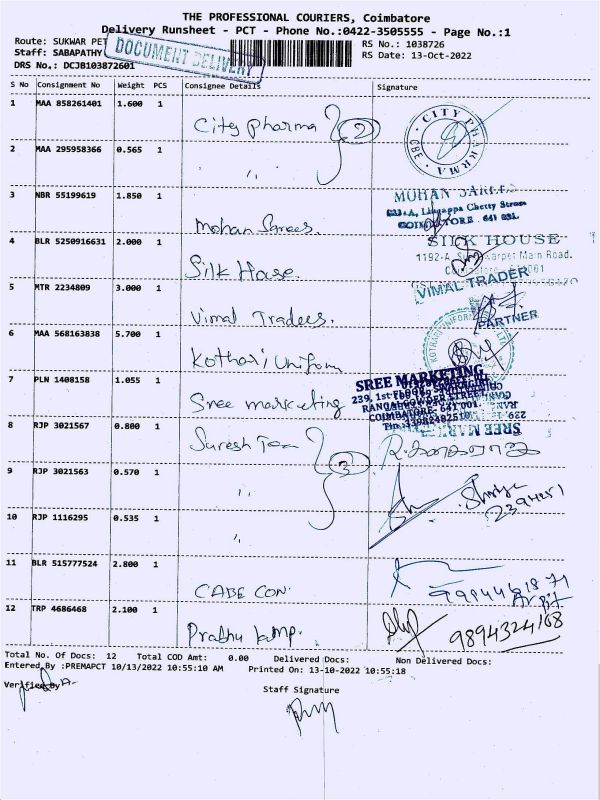 THE PROFESSIONAL COURIERS, Coimbatore
Delivery Runsheet - PCT - Phone No.:0422-3505555 - Page No.:1
Route: SUKWAR PET
RS No.: 1038726
Staff: SABAPATHY
DOCUMENT DELIVERY
RS Date: 13-Oct-2022
DRS No.: DCJB103872601
S No Consignment No Weight PCS Consignee Details Signature
1 MAA 858261401 1.600 1 City Pharma 2 CITY PHARMA CBE
2 MAA 295958366 0.565 1 " "
3 NBR 55199619 1.850 1 Mohan Srees. MOHAN SAREES
Lingappa Chetty Street
COIMBATORE - 641 001.
4 BLR 5250916631 2.000 1 Silk House. SILK HOUSE
1192-A, Main Road.
5 MTR 2234809 3.000 1 Vimal Tradees. VIMAL TRADER
PARTNER
6 MAA 568163838 5.700 1 Kothari Uniform KOTHARI UNIFORM
7 PLN 1408158 1.055 1 Sree marketing SREE MARKETING
239, 1st
COIMBATORE- 641 001
8 RJP 3021567 0.800 1 Suresh Tex 3
SREE MARK
9 RJP 3021563 0.570 1 " "
10 RJP 1116295 0.535 1 "
11 BLR 515777524 2.800 1 CABE CON.
12 TRP 4686468 2.100 1 Prabhu Lamp. 9894324168
Total No. Of Docs: 12 Total COD Amt: 0.00 Delivered Docs: Non Delivered Docs:
Entered By :PREMAPCT 10/13/2022 10:55:10 AM Printed On: 13-10-2022 10:55:18
Verified By
Staff Signature